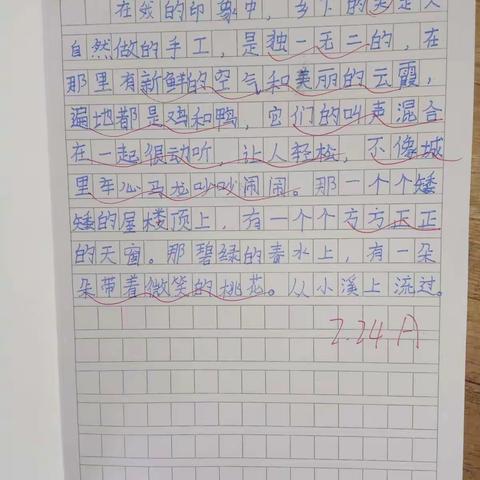 在我的印象中，乡下的美是大
自然做的手工，是独一无二的，在
那里有新鲜的空气和美丽的云霞，
遍地都是鸡和鸭，它们的叫声混合
在一起很动听，让人轻松，不像城
里车心马龙吵吵闹闹。那一个个矮
矮的屋楼顶上，有一个个方方正正
的天窗。那碧绿的春水上，有一朵
朵带着微笑的桃花。从小溪上流过。
2.24 A